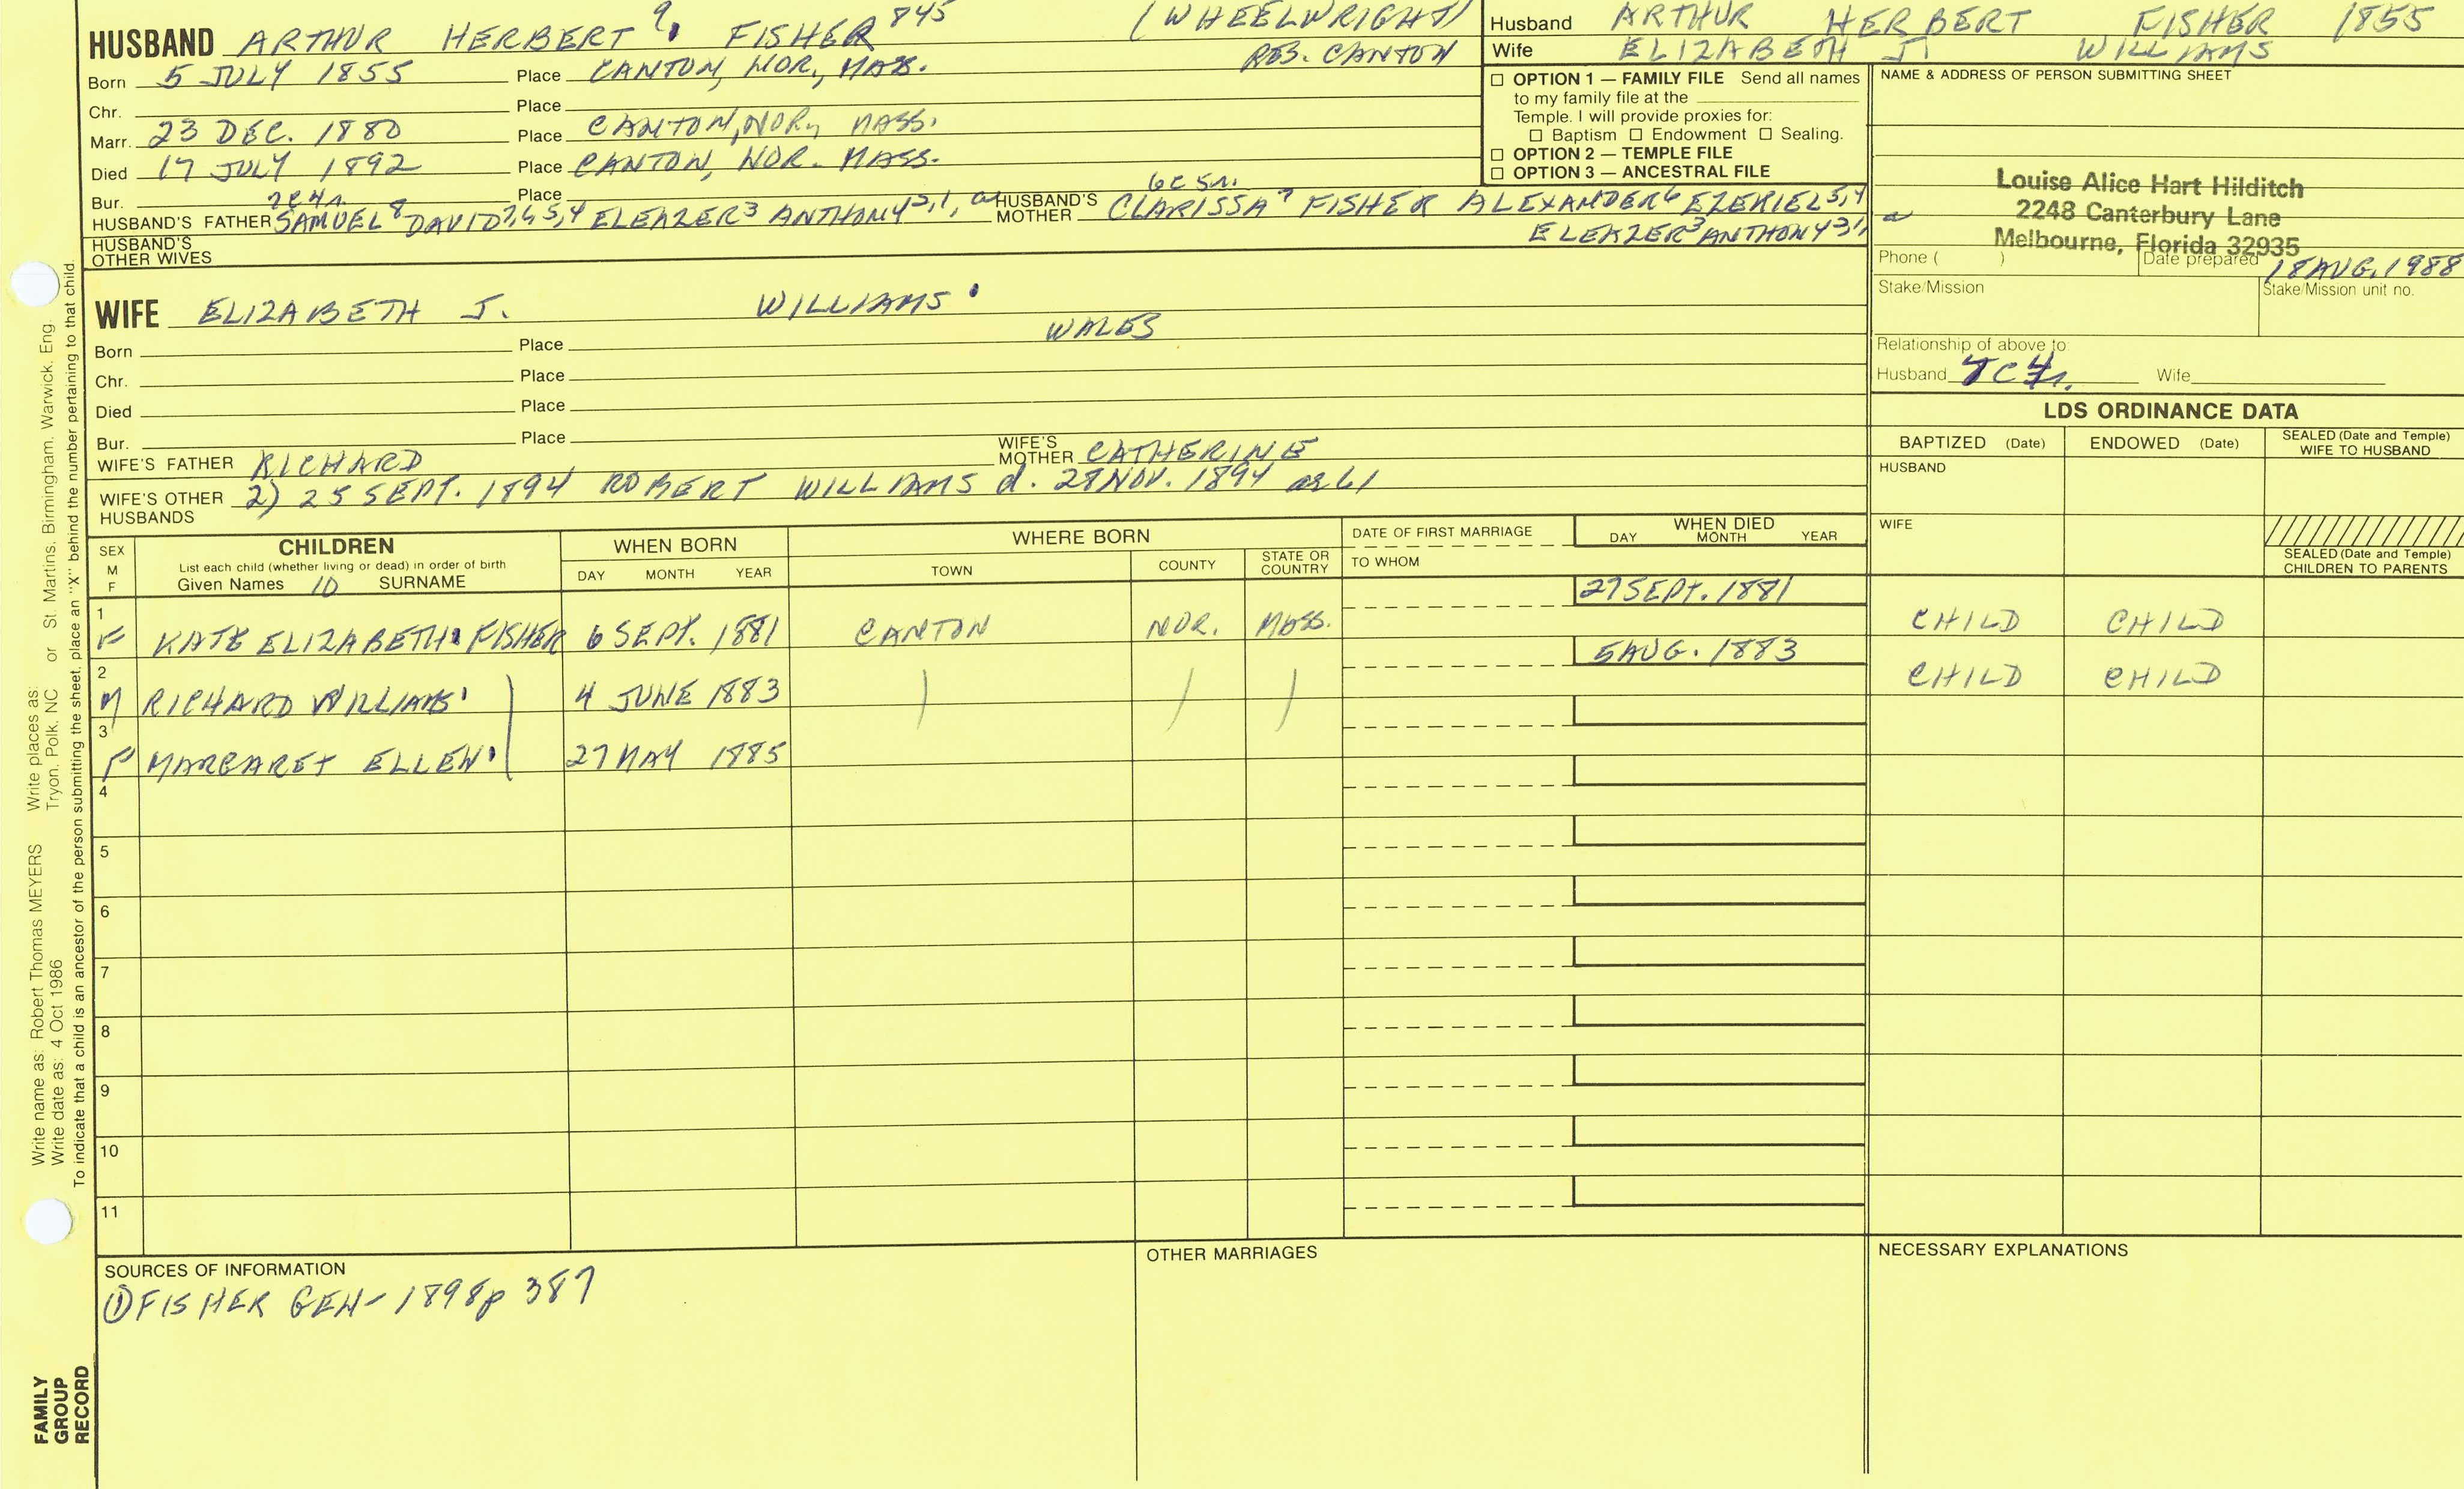 HUSBAND ARTHUR HERBERT 9. FISHER 845 (WHEELWRIGHT)
RES. CANTON
Born 5 JULY 1855 Place CANTON, NOR., MASS.
Chr. Place
Marr. 23 DEC. 1880 Place CANTON, NOR, MASS.
Died 17 JULY 1892 Place CANTON, NOR. MASS.
Bur. Place
2C4r 6C5r.
HUSBAND'S FATHER SAMUEL 8 DAVID 7,6,5,4 ELEAZER 3 ANTHONY 2,1, a HUSBAND'S MOTHER CLARISSA 7 FISHER ALEXANDER 6 EZEKIEL 5,4
ELEAZER 3 ANTHONY
HUSBAND'S OTHER WIVES
Husband ARTHUR HERBERT FISHER 1855
Wife ELIZABETH J. WILLIAMS
☐ OPTION 1 — FAMILY FILE Send all names
to my family file at the
Temple. I will provide proxies for:
☐ Baptism ☐ Endowment ☐ Sealing.
☐ OPTION 2 — TEMPLE FILE
☐ OPTION 3 — ANCESTRAL FILE
NAME & ADDRESS OF PERSON SUBMITTING SHEET
Louise Alice Hart Hilditch
2248 Canterbury Lane
Melbourne, Florida 32935
Phone ( ) Date prepared 18 AUG. 1988
Stake/Mission Stake/Mission unit no.
Relationship of above to:
Husband Wife
WIFE ELIZABETH J. WILLIAMS
WALES
Born Place
Chr. Place
Died Place
Bur. Place
WIFE'S FATHER RICHARD WIFE'S MOTHER CATHERINE
WIFE'S OTHER HUSBANDS 2) 25 SEPT. 1894 ROBERT WILLIAMS d. 28 NOV. 1894 ae 61
LDS ORDINANCE DATA
BAPTIZED (Date) ENDOWED (Date) SEALED (Date and Temple) WIFE TO HUSBAND
HUSBAND
WIFE
SEALED (Date and Temple) CHILDREN TO PARENTS
SEX M F
CHILDREN
List each child (whether living or dead) in order of birth
Given Names 10 SURNAME
WHEN BORN
DAY MONTH YEAR
WHERE BORN
TOWN COUNTY STATE OR COUNTRY
DATE OF FIRST MARRIAGE
TO WHOM
WHEN DIED
DAY MONTH YEAR
1 F KATE ELIZABETH FISHER 6 SEPT. 1881 CANTON NOR. MASS. 27 SEPT. 1881 CHILD CHILD
2 M RICHARD WILLIAMS 4 JUNE 1883 5 AUG. 1883 CHILD CHILD
3 F MARGARET ELLEN 27 MAY 1885
4
5
6
7
8
9
10
11
SOURCES OF INFORMATION
① FISHER GEN- 1898 p 387
OTHER MARRIAGES
NECESSARY EXPLANATIONS
Write name as: Robert Thomas MEYERS Write places as: St. Martins, Birmingham, Warwick, Eng.
Write date as: 4 Oct 1986 Tryon, Polk, NC or
To indicate that a child is an ancestor of the person submitting the sheet, place an "X" behind the number pertaining to that child.
FAMILY GROUP RECORD